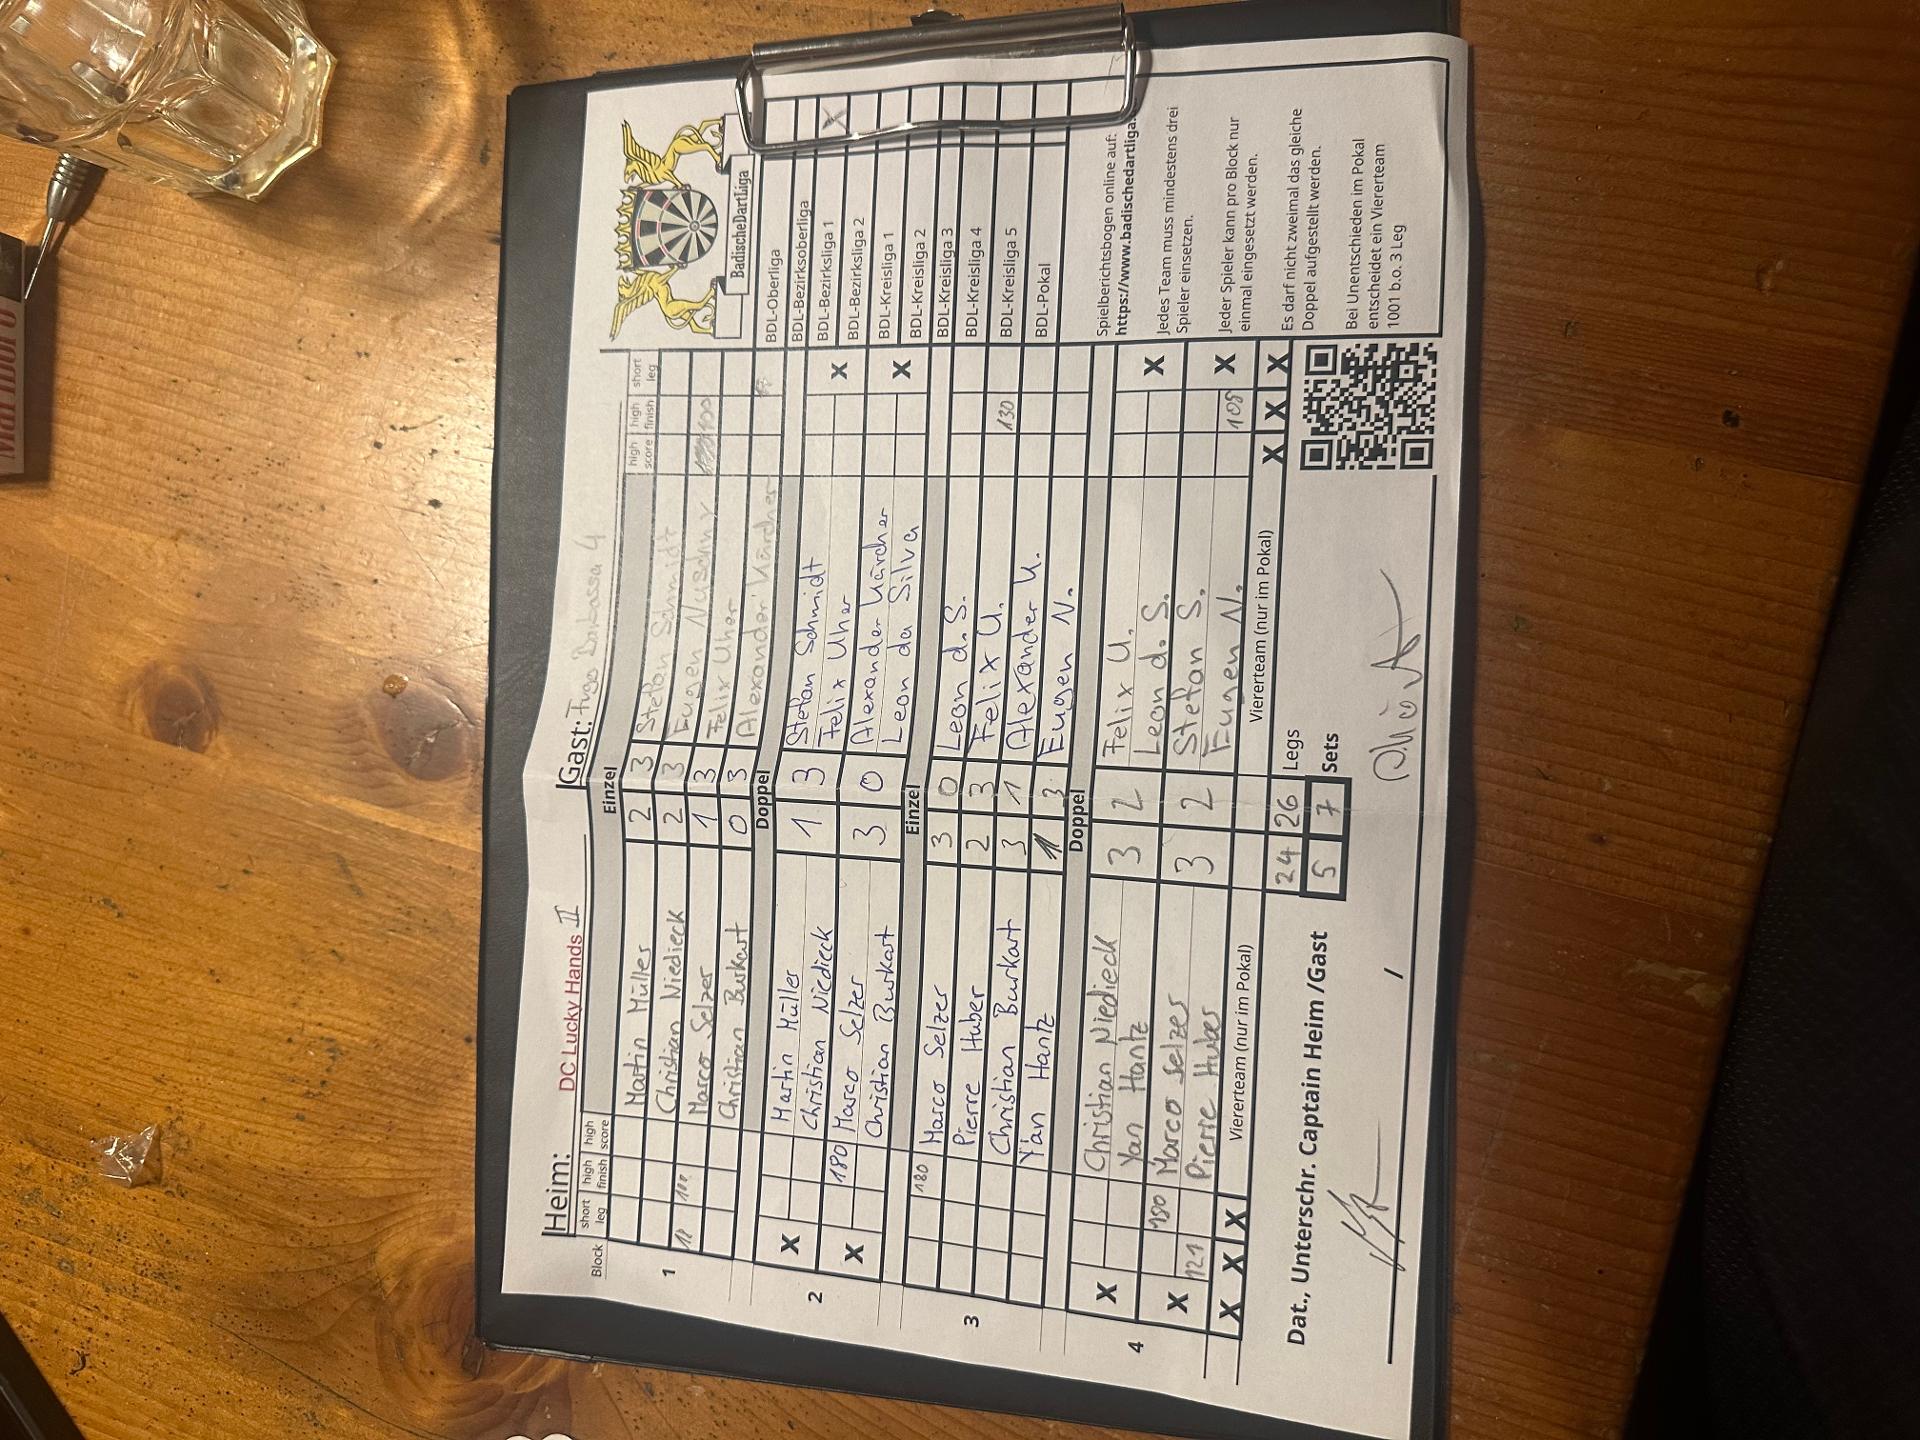 Heim: DC Lucky Hands II Gast:
Block short leg high finish high score Einzel high score high finish short leg
1 Martin Müller 2 3 Stefan Schmidt
Christian Niedieck 2 3 Eugen
Marco Selzer 1 3 Felix Uher
Christian Burkart 0 3 Alexander Kärcher
Doppel
2 X Martin Müller 1 3 Stefan Schmidt
Christian Niedieck Felix Uher X
X 180 Marco Selzer 3 0 Alexander Kärcher
Christian Burkart Leon da Silva X
Einzel
3 180 Marco Selzer 3 0 Leon d. S.
Pierre Huber 2 3 Felix U.
Christian Burkart 3 1 Alexander K. 130
Yan Hantz 1 3 Eugen N.
Doppel
4 X Christian Niedieck 3 2 Felix U.
Yan Hantz Leon d. S. X
X 180 Marco Selzer 3 2 Stefan S.
121 Pierre Huber Eugen N. 108 X
X X X Viererteam (nur im Pokal) Viererteam (nur im Pokal) X X X
24 26 Legs
5 7 Sets
Dat., Unterschr. Captain Heim /Gast
/
BadischeDartLiga
BDL-Oberliga
BDL-Bezirksoberliga
BDL-Bezirksliga 1 X
BDL-Bezirksliga 2
BDL-Kreisliga 1
BDL-Kreisliga 2
BDL-Kreisliga 3
BDL-Kreisliga 4
BDL-Kreisliga 5
BDL-Pokal
Spielberichtsbogen online auf:
https://www.badischedartliga.
Jedes Team muss mindestens drei
Spieler einsetzen.
Jeder Spieler kann pro Block nur
einmal eingesetzt werden.
Es darf nicht zweimal das gleiche
Doppel aufgestellt werden.
Bei Unentschieden im Pokal
entscheidet ein Viererteam
1001 b.o. 3 Leg
Marlboro